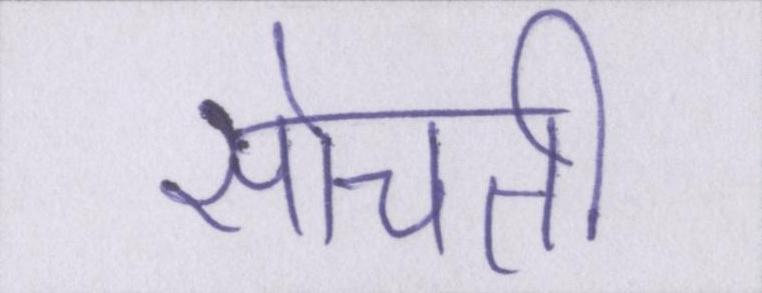 सोचती